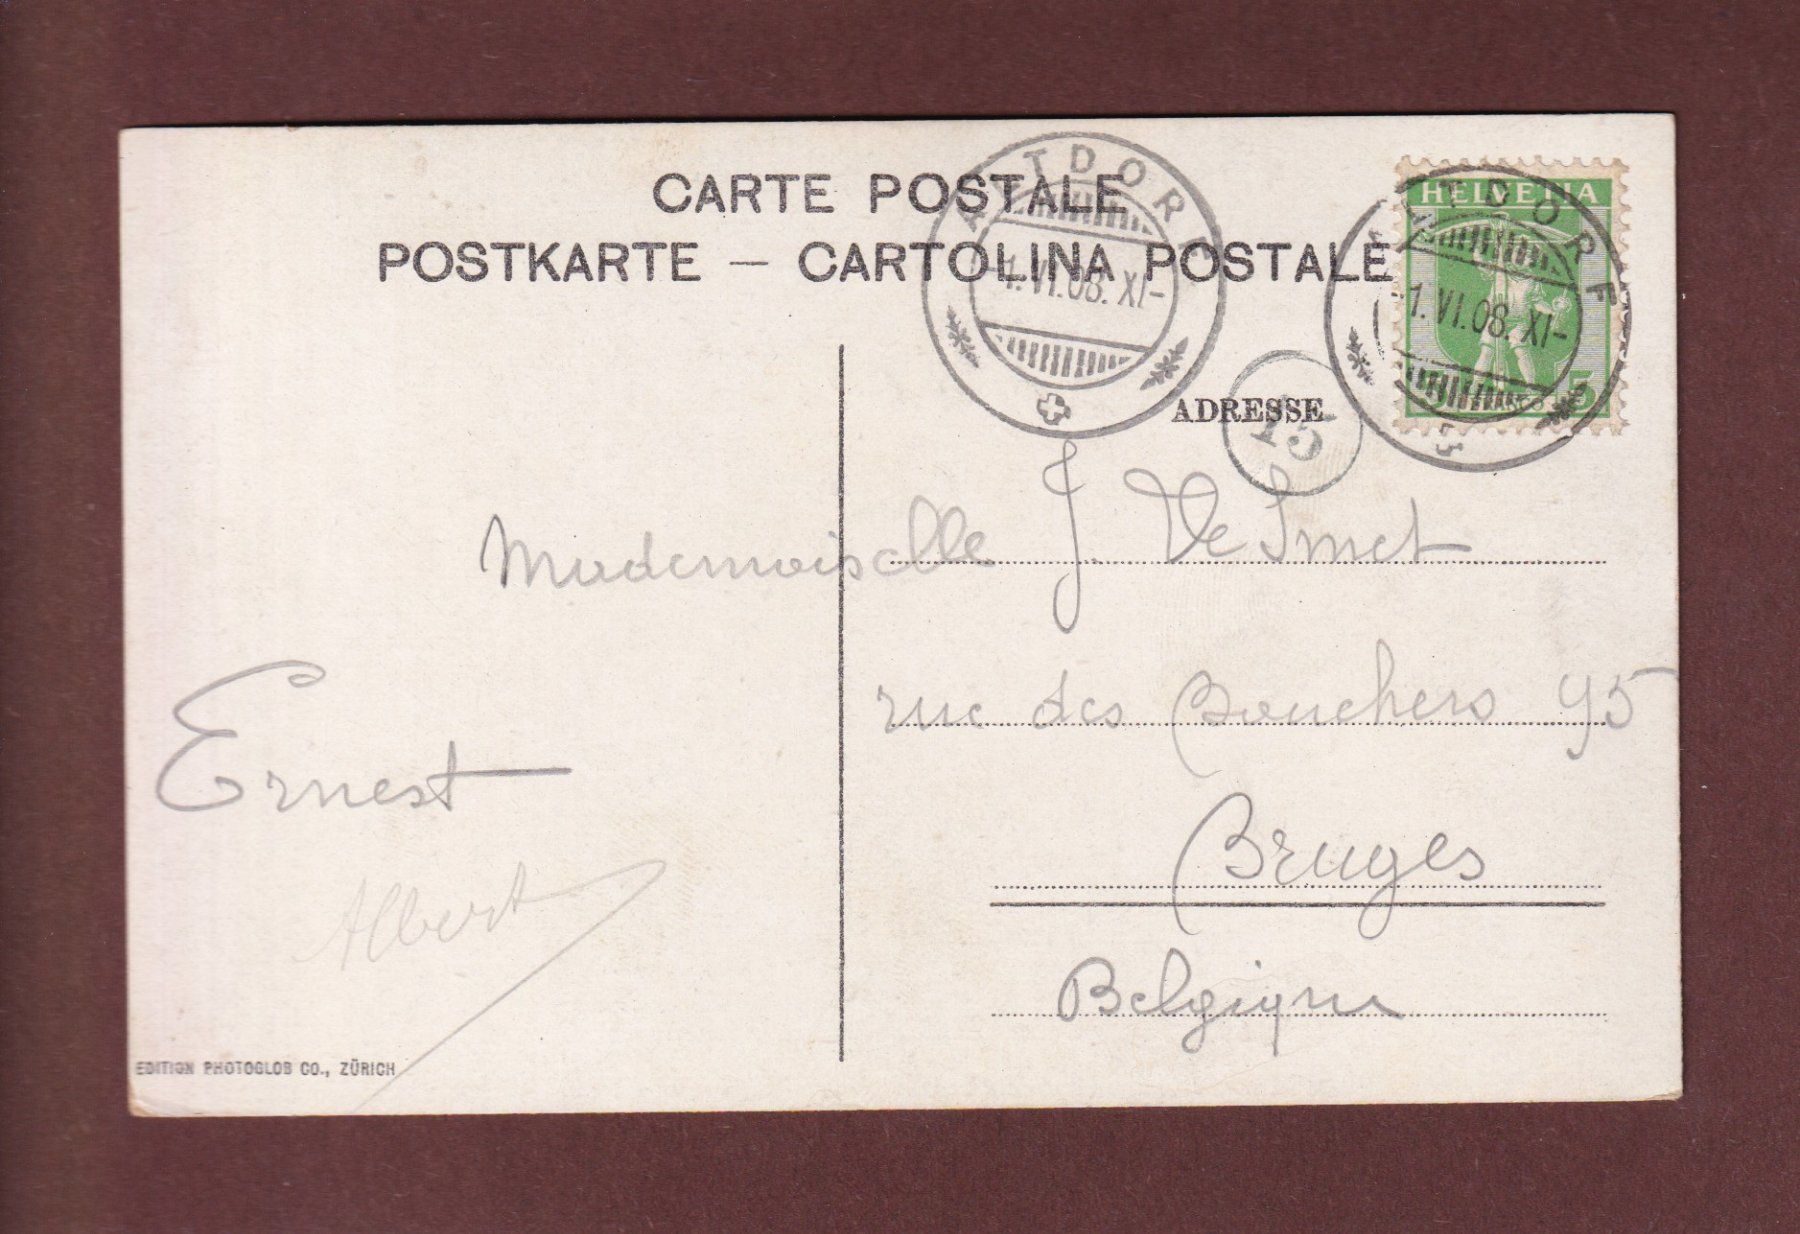 CARTE POSTALE
POSTKARTE — CARTOLINA POSTALE
ALTDORF
-1.VI.08.XI-
HELVETIA
ALTDORF
-1.VI.08.XI-
FRANCO 5
ADRESSE
15
Mademoiselle J. De Smet
rue des Bouchers 95
Bruges
Belgique
Ernest
Albert
EDITION PHOTOGLOB CO., ZÜRICH